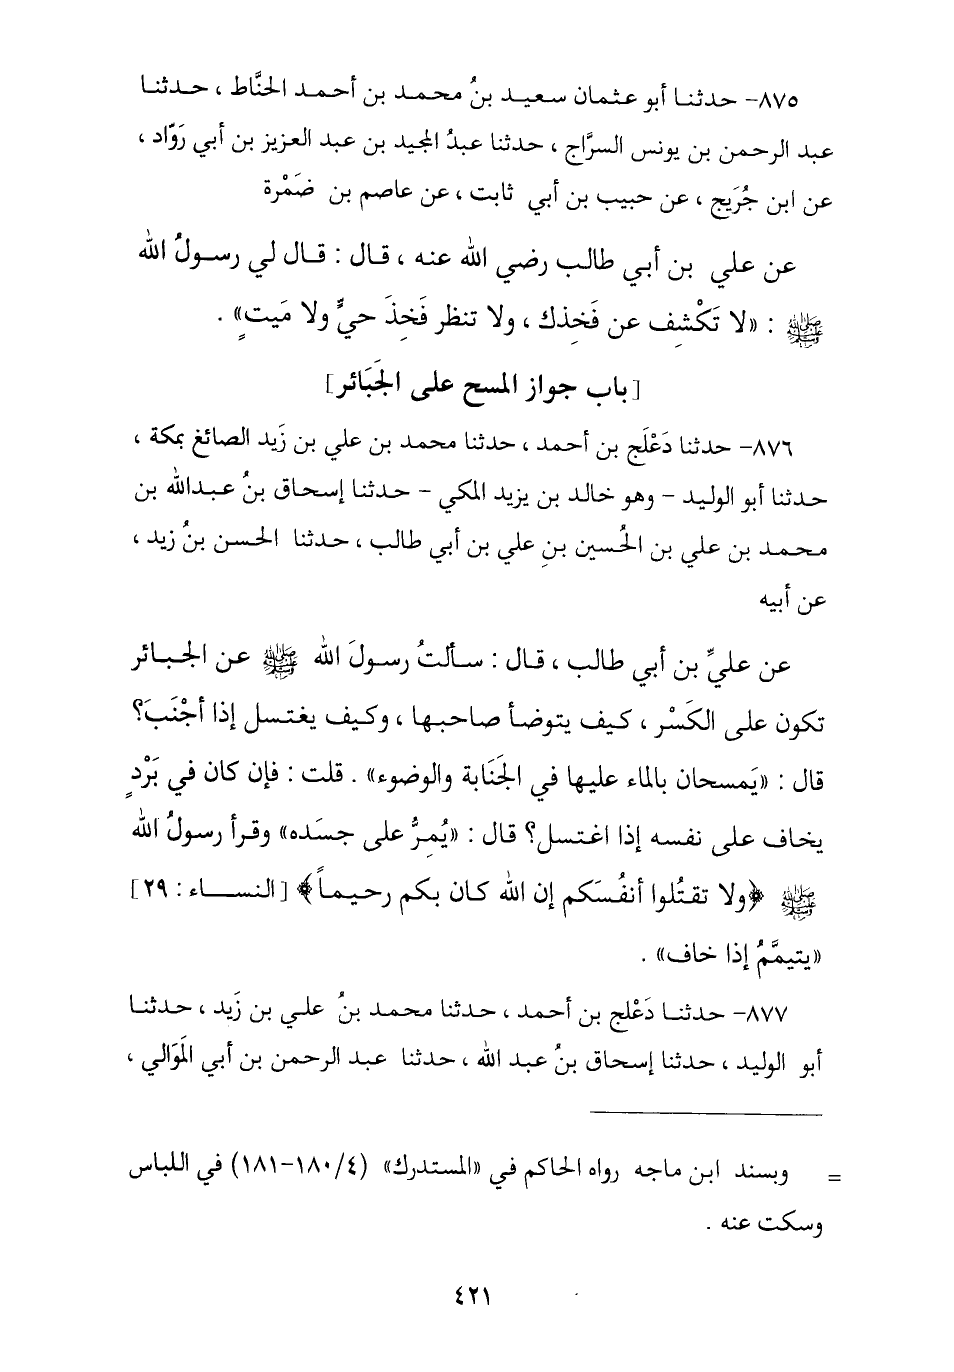 ٨٧٥- حدثنا أبو عثمان سعيد بنُ محمد بن أحمد الحنَّاط ، حدثنا
عبد الرحمن بن يونس السرَّاج ، حدثنا عبدُ المجيد بن عبد العزيز بن أبي رَوَّاد ،
عن ابن جُرَيج ، عن حبيب بن أبي ثابت ، عن عاصم بن ضَمْرة
عن علي بن أبي طالب رضي الله عنه ، قال : قال لي رسولُ الله
ﷺ : «لا تَكْشِف عن فَخِذك ، ولا تنظر فَخِذَ حيٍّ ولا مَيتٍ» .
[باب جواز المسح على الجَبَائر]
٨٧٦- حدثنا دَعْلَج بن أحمد ، حدثنا محمد بن علي بن زَيد الصائغ بمكة ،
حدثنا أبو الوليد - وهو خالد بن يزيد المكي - حدثنا إسحاق بنُ عبدالله بن
محمد بن علي بن الحُسين بنِ علي بن أبي طالب ، حدثنا الحسن بنُ زيد ،
عن أبيه
عن عليِّ بن أبي طالب ، قال : سألتُ رسولَ الله ﷺ عن الجبائر
تكون على الكَسْر ، كيف يتوضأ صاحبها ، وكيف يغتسل إذا أجْنَبَ؟
قال : «يَمسحان بالماء عليها في الجَنَابة والوضوء» . قلت : فإن كان في بَرْدٍ
يخاف على نفسه إذا اغتسل؟ قال : «يُمِرُّ على جسَده» وقرأ رسولُ الله
ﷺ ﴿ولا تقتُلوا أنفُسَكم إن الله كان بكم رحيماً﴾ [النساء : ٢٩]
«يتيمَّمُ إذا خاف» .
٨٧٧- حدثنا دَعْلج بن أحمد ، حدثنا محمد بنُ علي بن زَيد ، حدثنا
أبو الوليد ، حدثنا إسحاق بنُ عبد الله ، حدثنا عبد الرحمن بن أبي المَوَالي ،
= وبسند ابن ماجه رواه الحاكم في «المستدرك» (٤/١٨٠-١٨١) في اللباس
وسكت عنه .
٤٢١